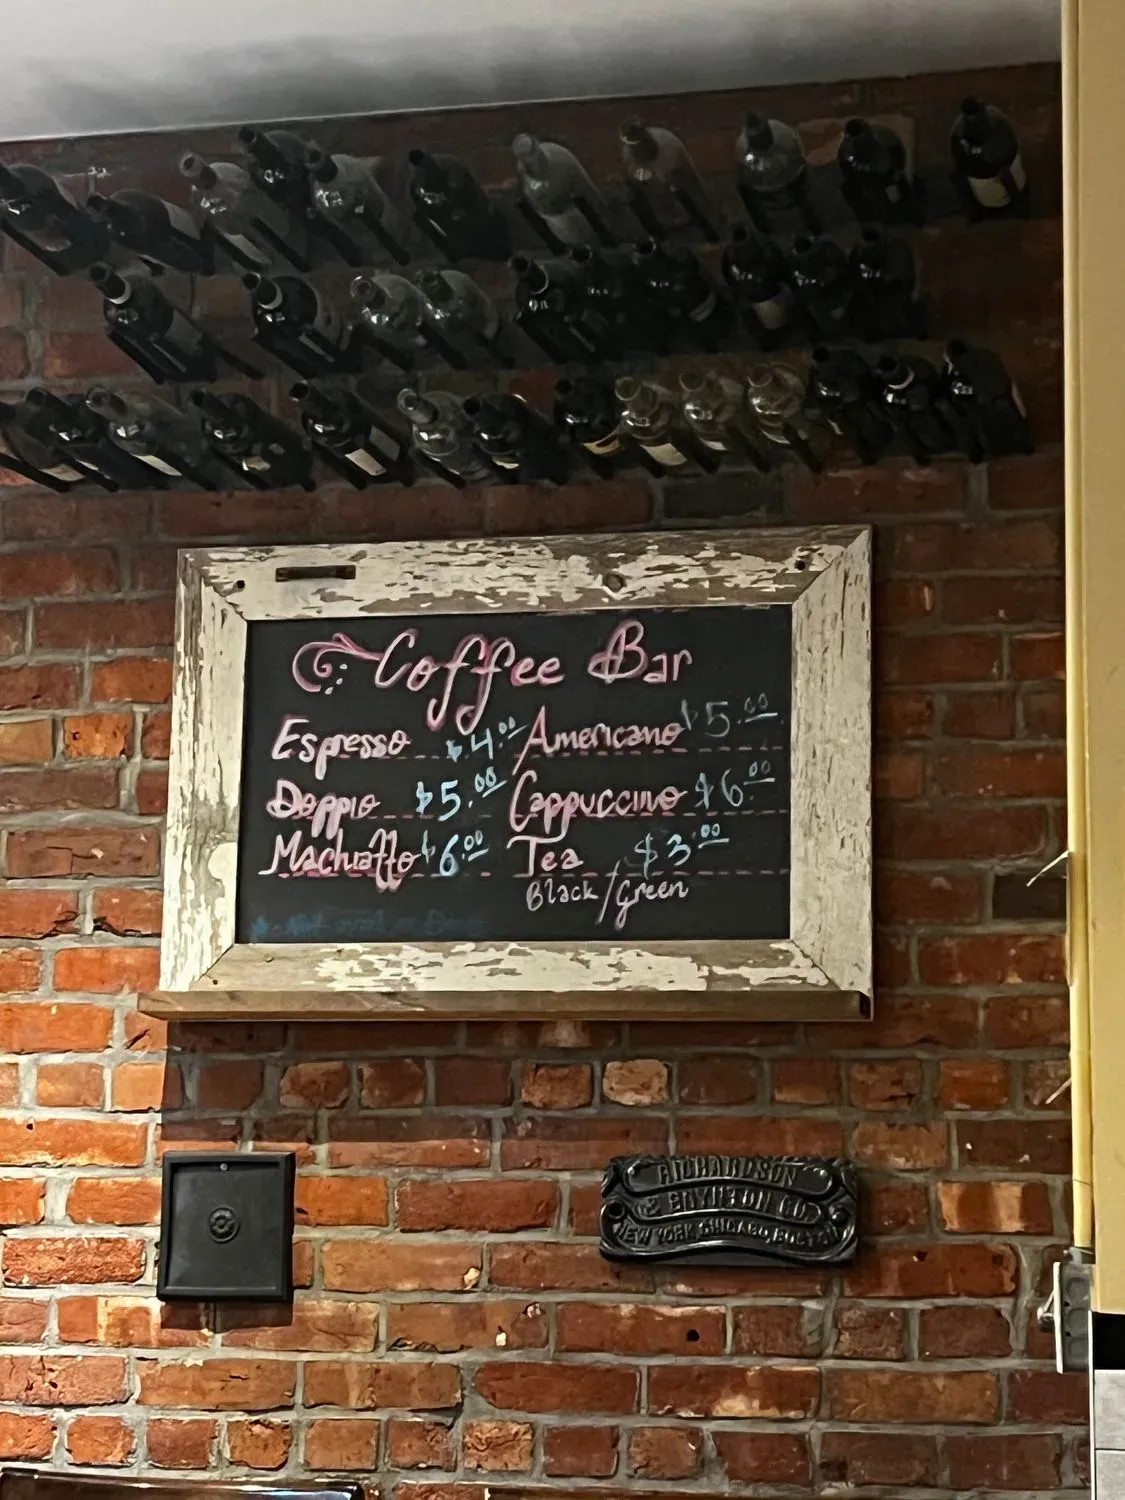 Coffee Bar
Espresso $4.00
Americano $5.00
Doppio $5.00
Cappuccino $6.00
Machiatto $6.00
Tea $3.00
Black/Green
RICHARDSON
& BOYNTON CO.
NEW YORK, CHICAGO, BOSTON